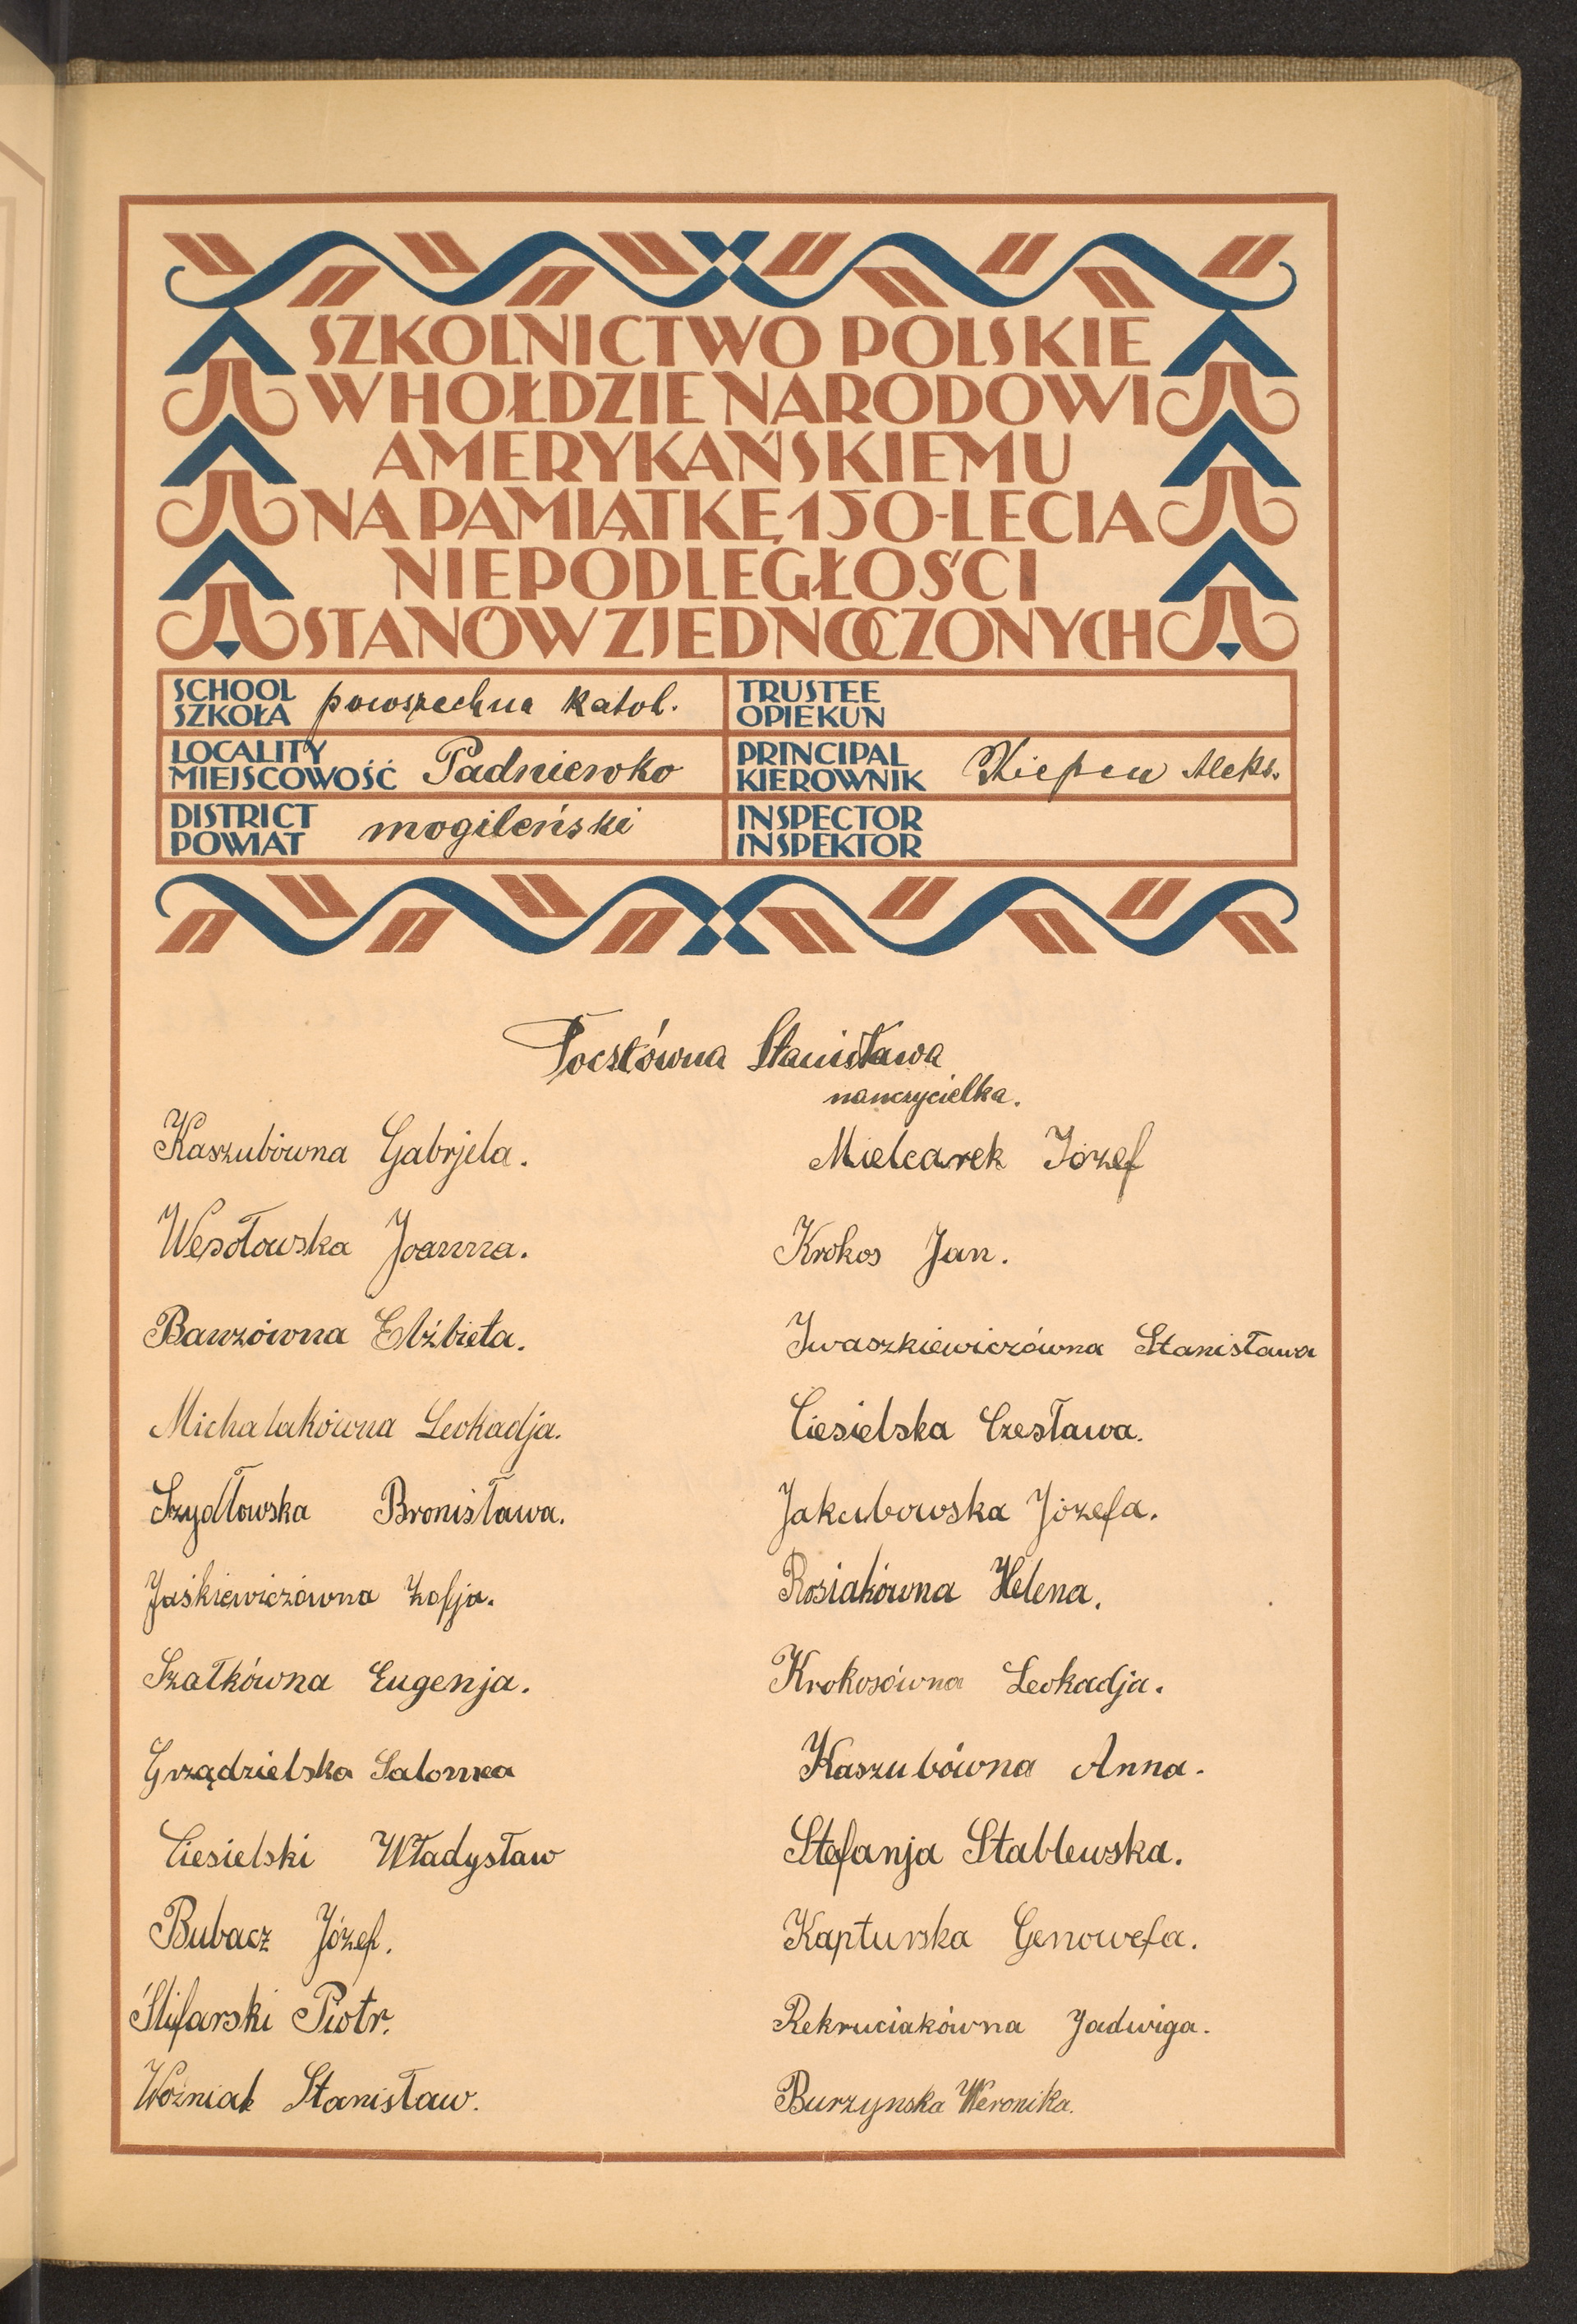 SZKOLNICTWO POLSKIE
W HOŁDZIE NARODOWI
AMERYKAŃSKIEMU
NA PAMIĄTKĘ 150-LECIA
NIEPODLEGŁOŚCI
STANÓW ZJEDNOCZONYCH
SCHOOL
SZKOŁA powszechna katol.
TRUSTEE
OPIEKUN
LOCALITY
MIEJSCOWOŚĆ Padniewko
PRINCIPAL
KIEROWNIK Kiepen Aleks.
DISTRICT
POWIAT mogileński
INSPECTOR
INSPEKTOR
Stanisława
nauczycielka.
Kaszubówna Gabrjela.
Wesołowska Joanna.
Banzówna Elżbieta.
Michalakówna Leokadja.
Szydłowska Bronisława.
Jaśkiewiczówna Zofja.
Szałkówna Eugenja.
Grządzielska Salomea
Ciesielski Władysław
Bubacz Józef.
Ślifarski Piotr.
Woźniak Stanisław.
Mielcarek Józef
Krokos Jan.
Iwaszkiewiczówna Stanisława
Ciesielska Czesława.
Jakubowska Józefa.
Rosiakówna Helena.
Krokosówna Leokadja.
Kaszubówna Anna.
Stefanja Stablewska.
Kapturska Genowefa.
Rekruciakówna Jadwiga.
Burzynska Weronika.